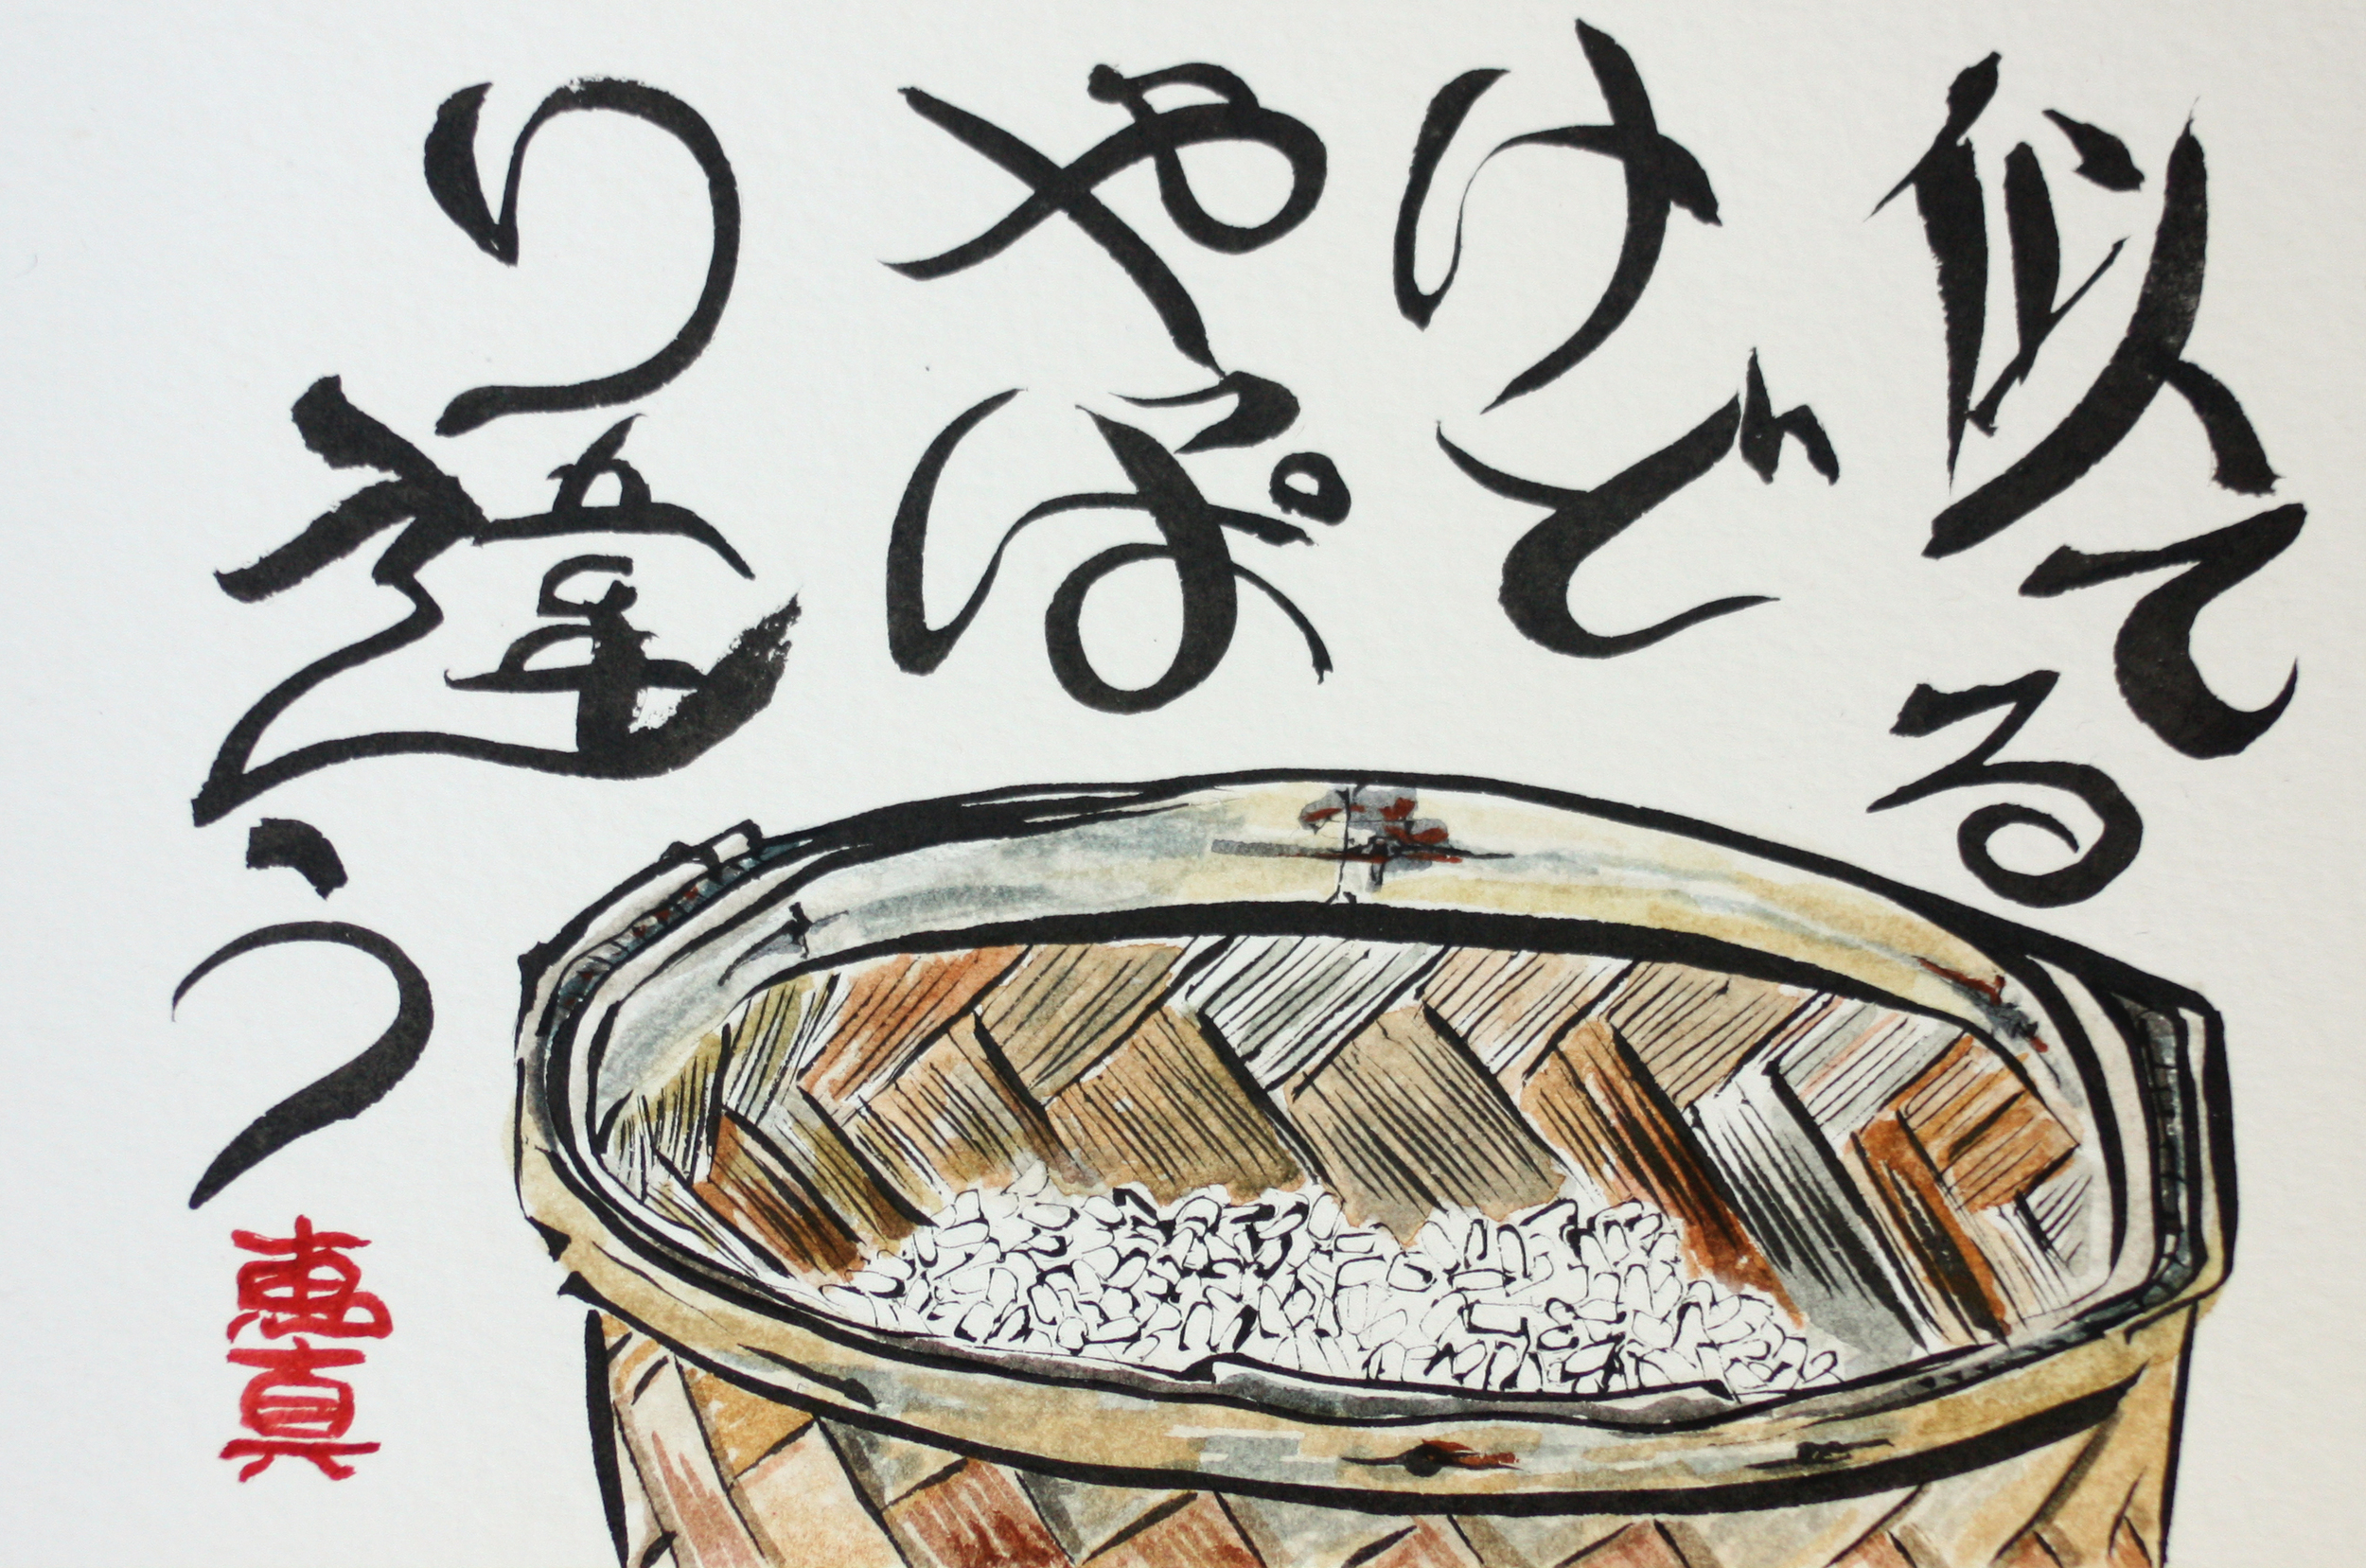 似てる
けど
やっぱ
り違う
恵真